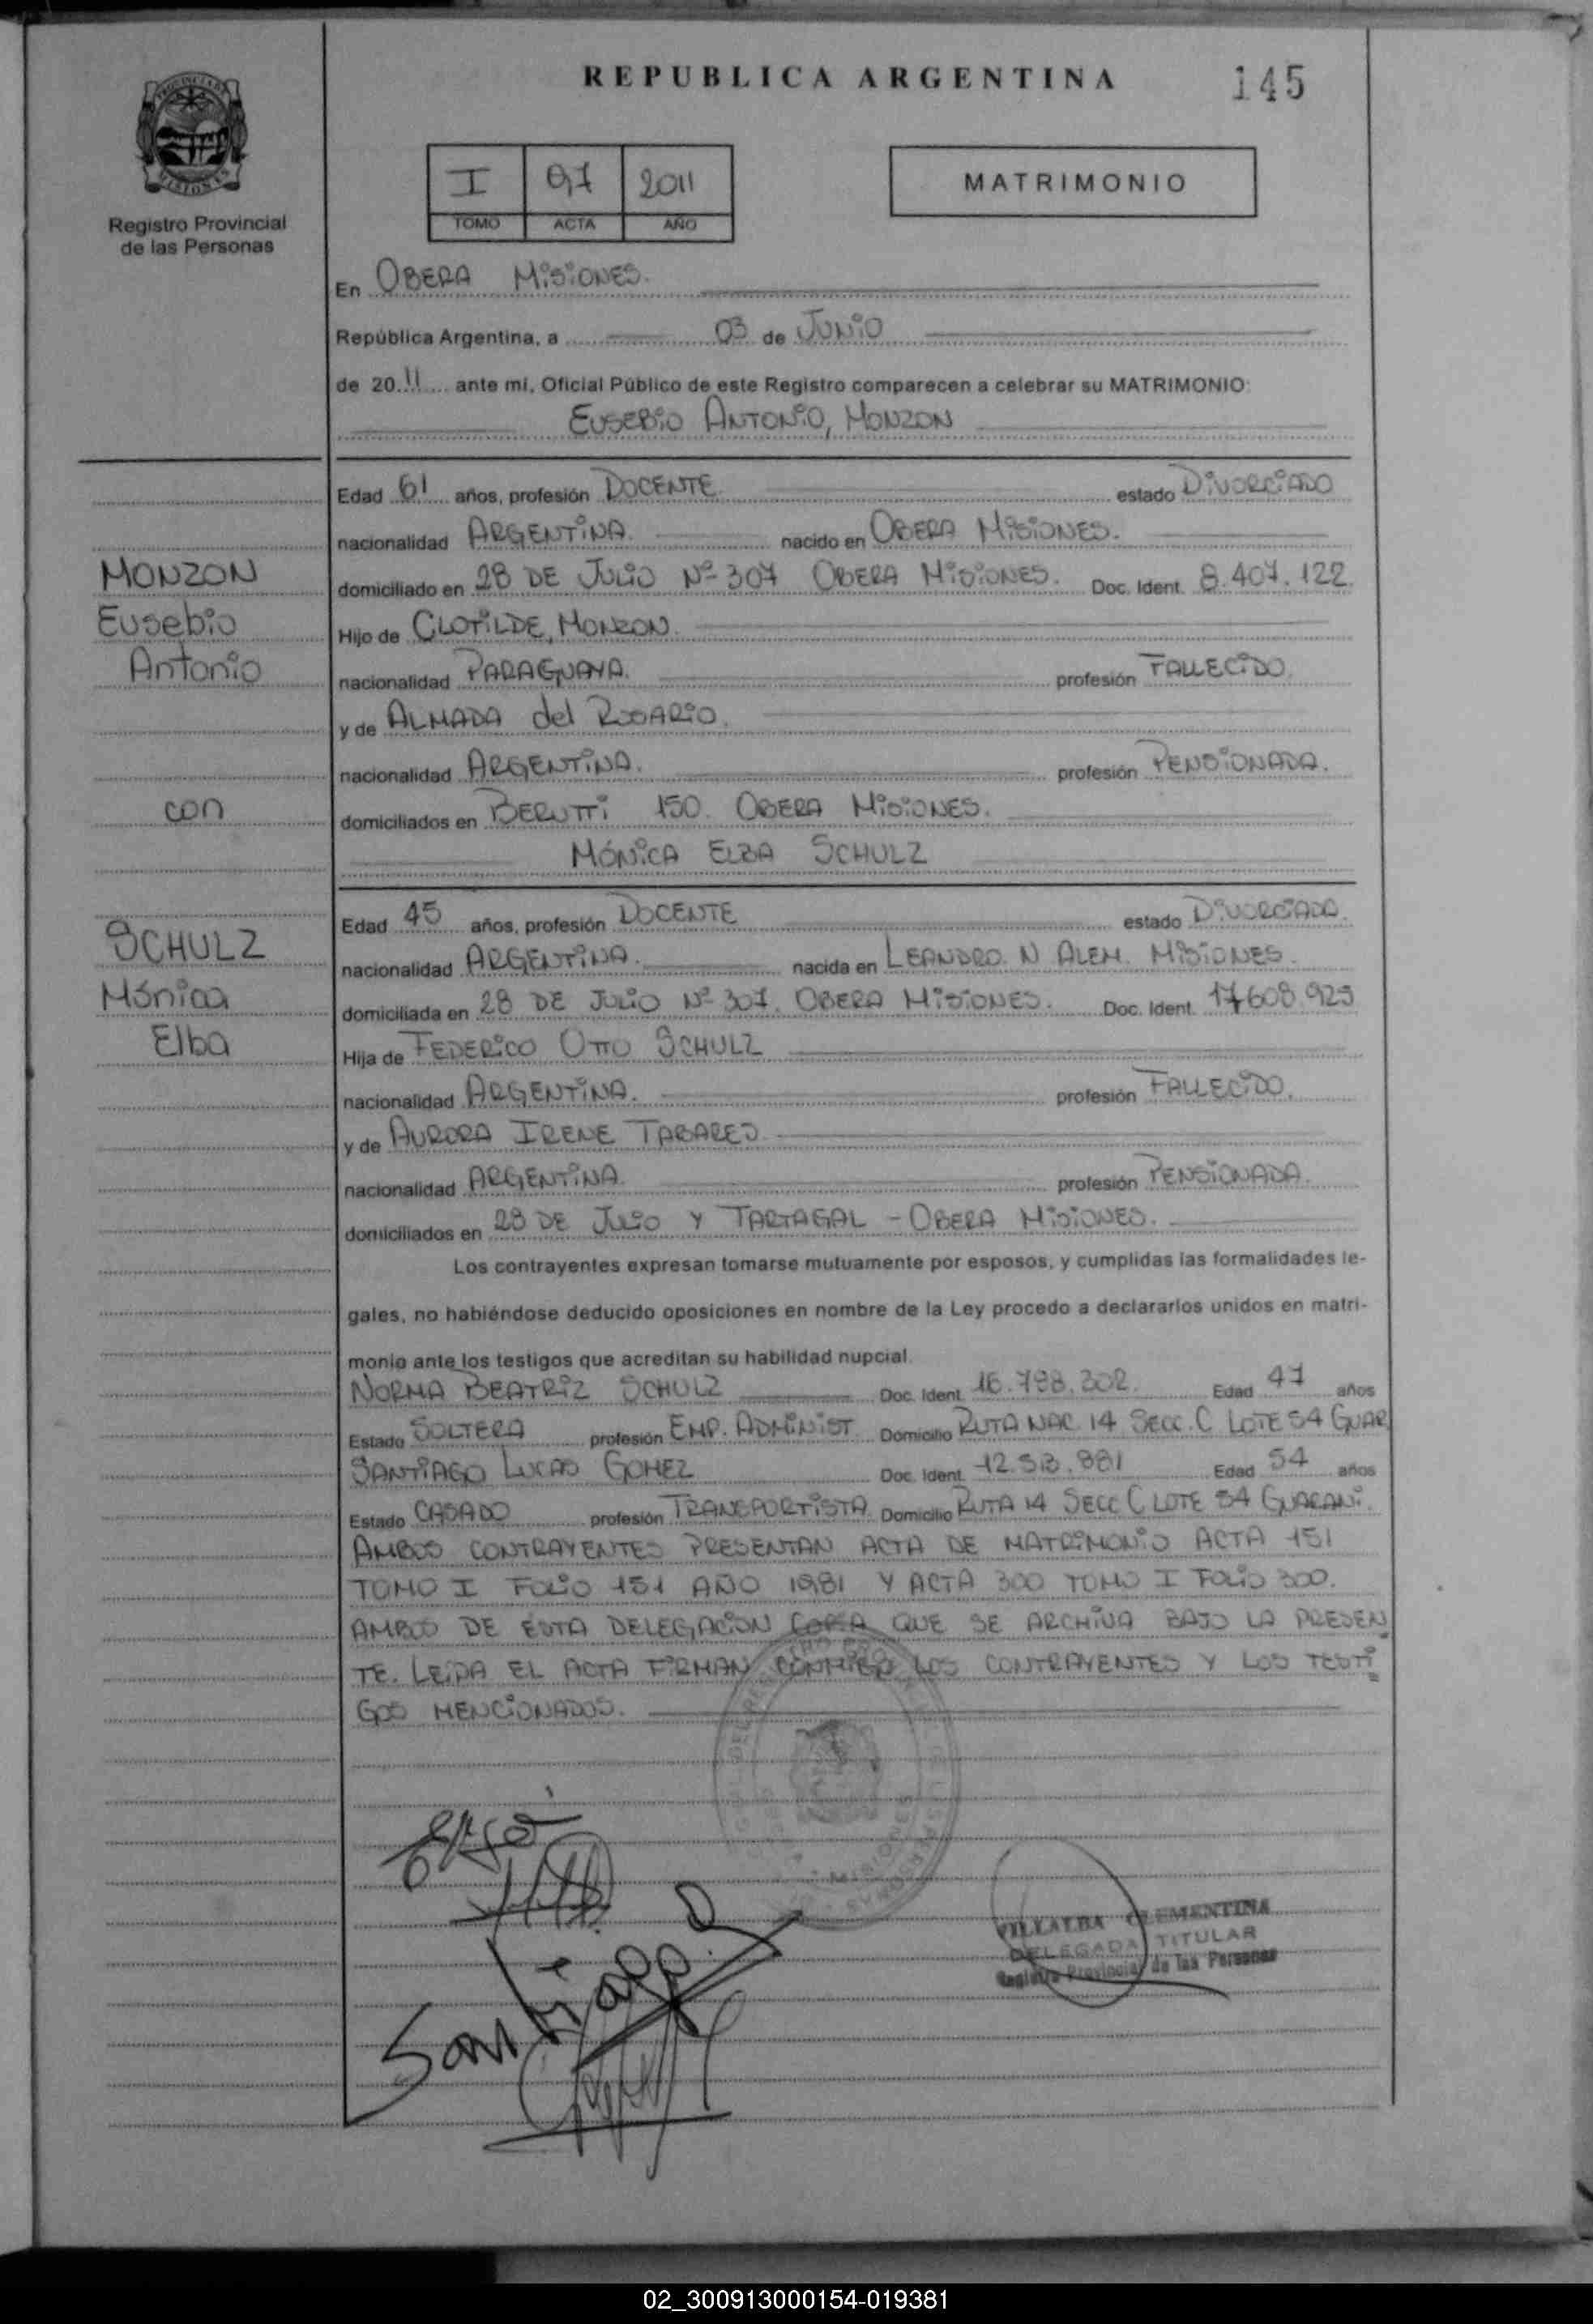 REPUBLICA ARGENTINA
145
PROVINCIA DE
MISIONES
Registro Provincial
de las Personas
I 97 2011
TOMO ACTA AÑO
MATRIMONIO
En OBERA MISIONES.
República Argentina, a 03 de JUNIO
de 20 11 ante mí, Oficial Público de este Registro comparecen a celebrar su MATRIMONIO:
EUSEBIO ANTONIO, MONZON
Edad 61 años, profesión DOCENTE estado DIVORCIADO
nacionalidad ARGENTINA. nacido en OBERA MISIONES.
domiciliado en 28 DE JULIO Nº 307 OBERA MISIONES. Doc. Ident. 8.407.122.
Hijo de CLOTILDE, MONZON.
nacionalidad PARAGUAYA. profesión FALLECIDO.
y de ALMADA del ROSARIO.
nacionalidad ARGENTINA. profesión PENSIONADA.
domiciliados en BERUTTI 150. OBERA MISIONES.
MONZON
Eusebio
Antonio
con
SCHULZ
Mónica
Elba
MÓNICA ELBA SCHULZ
Edad 45 años, profesión DOCENTE estado DIVORCIADA.
nacionalidad ARGENTINA. nacida en LEANDRO. N ALEM. MISIONES.
domiciliada en 28 DE JULIO Nº 307. OBERA MISIONES. Doc. Ident. 17.608.925
Hija de FEDERICO OTTO SCHULZ
nacionalidad ARGENTINA. profesión FALLECIDO.
y de AURORA IRENE TABARES
nacionalidad ARGENTINA. profesión PENSIONADA.
domiciliados en 28 DE JULIO Y TARTAGAL - OBERA MISIONES.
Los contrayentes expresan tomarse mutuamente por esposos, y cumplidas las formalidades le-
gales, no habiéndose deducido oposiciones en nombre de la Ley procedo a declararlos unidos en matri-
monio ante los testigos que acreditan su habilidad nupcial.
NORMA BEATRIZ SCHULZ Doc. Ident. 16.798.302. Edad 47 años
Estado SOLTERA profesión EMP. ADMINIST. Domicilio RUTA NAC. 14 SECC. C LOTE 54 GUAR
SANTIAGO LUCAS GOMEZ Doc. Ident. Edad 54 años
Estado CASADO profesión TRANSPORTISTA Domicilio RUTA 14 SECC C LOTE 54 GUARANI.
AMBOS CONTRAYENTES PRESENTAN ACTA DE MATRIMONIO ACTA 151
TOMO I FOLIO 151 AÑO 1981 Y ACTA 300 TOMO I FOLIO 300.
AMBOS DE ESTA DELEGACION COPIA QUE SE ARCHIVA BAJO LA PRESEN
TE. LEIDA EL ACTA FIRMAN CONMIGO LOS CONTRAYENTES Y LOS TESTI
GOS MENCIONADOS.
Santiago
VILLALBA CLEMENTINA
DELEGADA TITULAR
Registro Provincial de las Personas
02_300913000154-019381